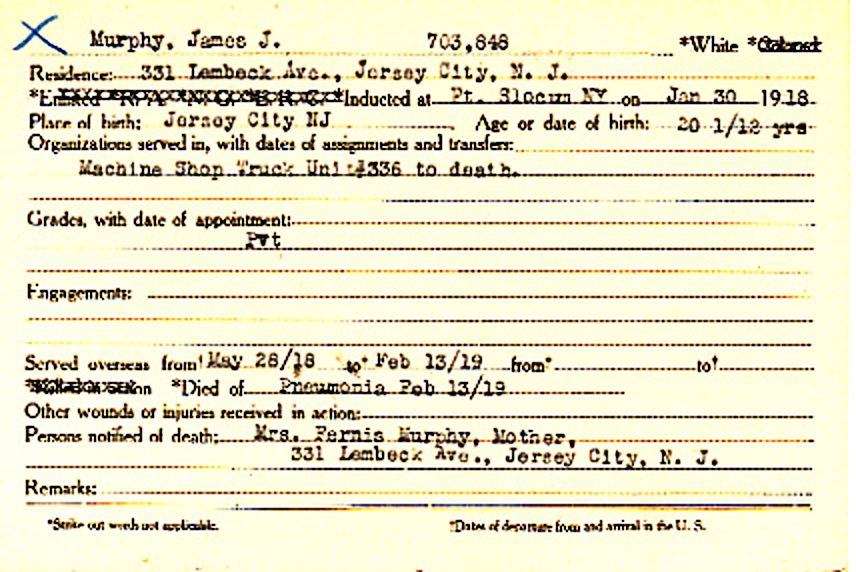 Murphy, James J. 703,848 *White *Colored
Residence: 331 Lembeck Ave., Jersey City, N. J.
*Inducted at Ft. Slocum NY on Jan 30 1918
Place of birth: Jersey City NJ Age or date of birth: 20 1/12 yrs
Organizations served in, with dates of assignments and transfers:
Machine Shop Truck Unit#336 to death.
Grades, with date of appointment:
Pvt
Engagements:
Served overseas from† May 28/18 to† Feb 13/19 from† to†
*Died of Pneumonia Feb 13/19
Other wounds or injuries received in action:
Persons notified of death: Mrs. Murphy, Mother,
331 Lembeck Ave., Jersey City, N. J.
Remarks:
*Strike out words not applicable. †Dates of departure from and arrival in the U. S.